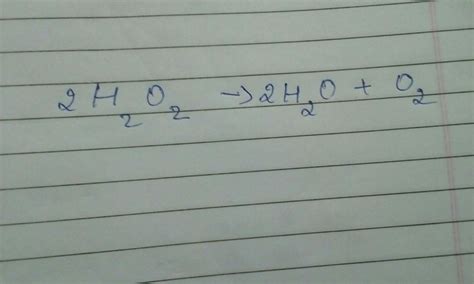 2 H₂ O₂ → 2H₂O + O₂